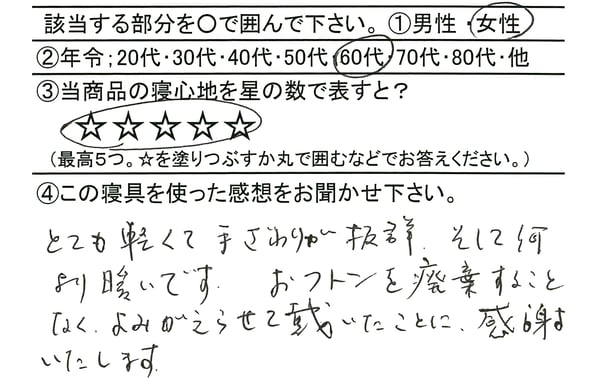 該当する部分を○で囲んで下さい。①男性・女性
②年令;20代・30代・40代・50代・60代・70代・80代・他
③当商品の寝心地を星の数で表すと？
☆☆☆☆☆
(最高5つ。☆を塗りつぶすか丸で囲むなどでお答えください。)
④この寝具を使った感想をお聞かせ下さい。
とても軽くて手ざわりが抜群、そして何
より暖いです。おフトンを廃棄すること
なく、よみがえらせて戴いたことに、感謝
いたします。